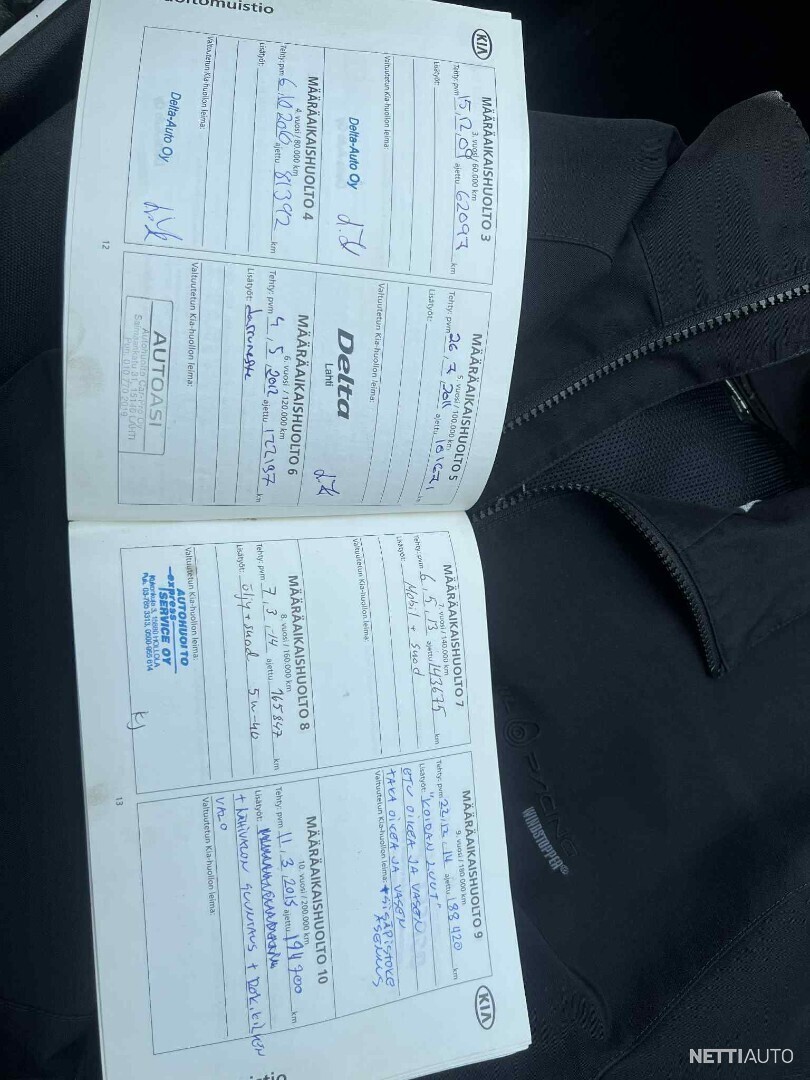 huoltomuistio
KIA
MÄÄRÄAIKAISHUOLTO 3
3. vuosi / 60.000 km
Tehty: pvm 15.12.09 ajettu 62097 km
Lisätyöt:
Valtuutetun Kia-huollon leima:
Delta-Auto Oy
MÄÄRÄAIKAISHUOLTO 4
4. vuosi / 80.000 km
Tehty: pvm 6.10.2010 ajettu 81392 km
Lisätyöt:
Valtuutetun Kia-huollon leima:
Delta-Auto Oy
12
MÄÄRÄAIKAISHUOLTO 5
5. vuosi / 100.000 km
Tehty: pvm 26.7.2011 ajettu 101671 km
Lisätyöt:
Valtuutetun Kia-huollon leima:
Delta
Lahti
MÄÄRÄAIKAISHUOLTO 6
6. vuosi / 120.000 km
Tehty: pvm 4.5.2012 ajettu 122197 km
Lisätyöt: Jarruneste
Valtuutetun Kia-huollon leima:
AUTOASI
MÄÄRÄAIKAISHUOLTO 7
7. vuosi / 140.000 km
Tehty: pvm 6.5.13 ajettu 143675 km
Lisätyöt: Mobil + suod
Valtuutetun Kia-huollon leima:
MÄÄRÄAIKAISHUOLTO 8
8. vuosi / 160.000 km
Tehty: pvm 7.3.14 ajettu 165847 km
Lisätyöt: öljy + suod 5w-40
Valtuutetun Kia-huollon leima:
AUTOHUOLTO
express
SERVICE OY
HOLLOLA
KJ
13
KIA
MÄÄRÄAIKAISHUOLTO 9
9. vuosi / 180.000 km
Tehty: pvm 22.12.14 ajettu 188920 km
Lisätyöt: "KOIRAN LUUT"
ETU OIKEA JA VASEN
TAKA OIKEA JA VASEN
Valtuutetun Kia-huollon leima: + SISÄPISTOKE
ASENNUS
MÄÄRÄAIKAISHUOLTO 10
10. vuosi / 200.000 km
Tehty: pvm 11.3.2015 ajettu 194700 km
Lisätyöt:
+ LÄHIVALON SUUNTAUS + ROK.KILVEN
VALO
Valtuutetun Kia-huollon leima:
RACING
WINDSTOPPER®
NETTIAUTO